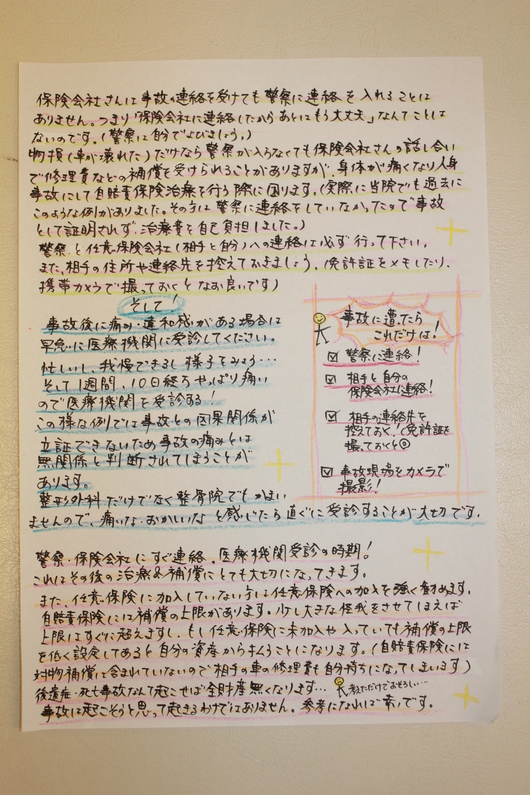 保険会社さんは事故の連絡を受けても警察に連絡を入れることは
ありません。つまり「保険会社に連絡したからあとはもう大丈夫」なんてことは
ないのです。(警察は自分でよびましょう。)
物損(車が壊れた)だけなら警察が入らなくても保険会社さんの話し合い
で修理費などの補償を受けられることがありますが、身体が痛くなり人身
事故にして自賠責保険治療を行う際に困ります。(実際に当院でも過去に
このような例がありました。その方は警察に連絡をしていなかったので事故
として証明されず治療費を自己負担しました。)
警察と任意保険会社(相手と自分)への連絡は必ず行って下さい。
また、相手の住所や連絡先を控えておきましょう。(免許証をメモしたり、
携帯カメラで撮っておくとなお良いです)
そして!
事故後に痛み・違和感がある場合は
早急に医療機関に受診してください。
忙しいし、我慢できるし様子をみよう…
そして1週間、10日経ちやっぱり痛い
ので医療機関を受診する!
この様な例では事故との因果関係が
立証できないため事故の痛みとは
無関係と判断されてしまうことが
あります。
整形外科だけでなく整骨院でもかまい
ませんので、痛いな・おかしいなと感じたら直ぐに受診することが大切です。
事故に遭ったら
これだけは!
☑ 警察に連絡!
☑ 相手と自分の
保険会社に連絡!
☑ 相手の連絡先を
控えておく。(免許証を
撮っておくと◎
☑ 事故現場をカメラで
撮影!
警察・保険会社にすぐ連絡。医療機関受診の時期!
これはその後の治療&補償にとても大切になってきます。
また、任意保険に加入していない方は任意保険への加入を強く勧めます。
自賠責保険には補償の上限があります。少し大きな怪我をさせてしまえば
上限はすぐに超えますし、もし任意保険に未加入や入っていても補償の上限
を低く設定してあると自分の資産から払うことになります。(自賠責保険には
対物補償は含まれていないので相手の車の修理費も自分持ちになってしまいます)
後遺症・死亡事故なんて起こせば全財産無くなります… 考えただけでおそろしい…
事故は起こそうと思って起きるわけではありません。参考になれば幸いです。